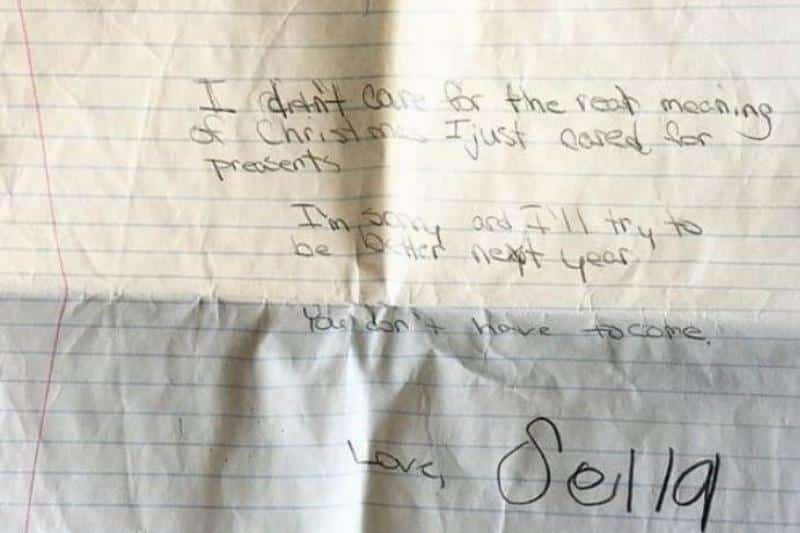 I didn't care for the real meaning
of Christmas I just cared for
preasents
I'm sorry and I'll try to
be better next year
You don't have to come.
Love, Sella